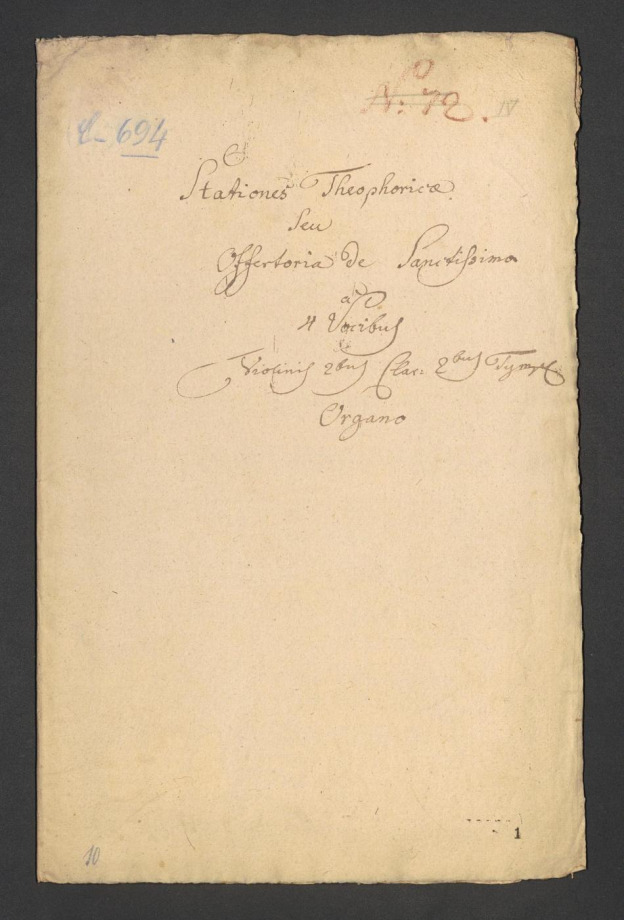 No: 72. IV
C-694
Stationes Theophoricæ
Seu
Offertoria de Sanctissimo
a
4 Vocibus
Violinis 2bus Clar: 2bus Tymp:
Organo
1
10